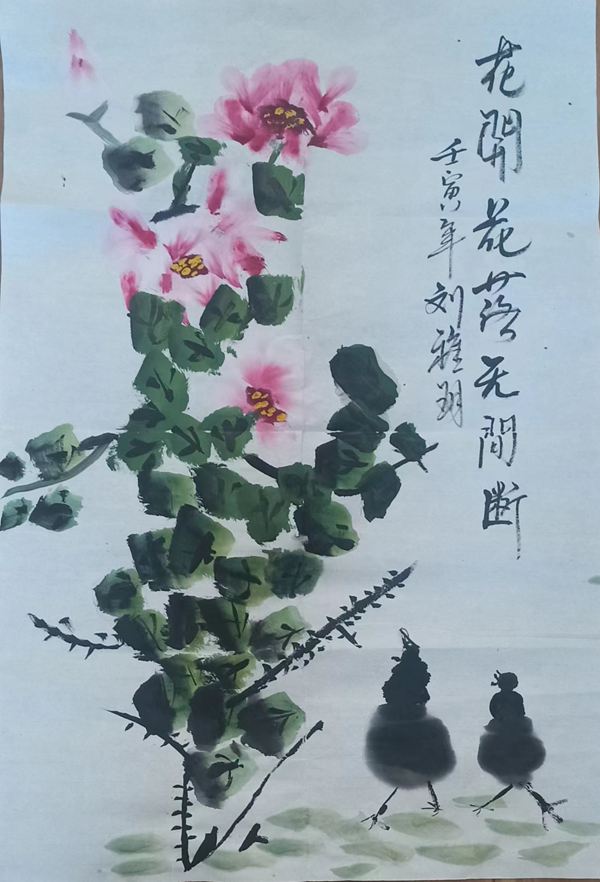 花開花落无間断
壬寅年刘雅玥